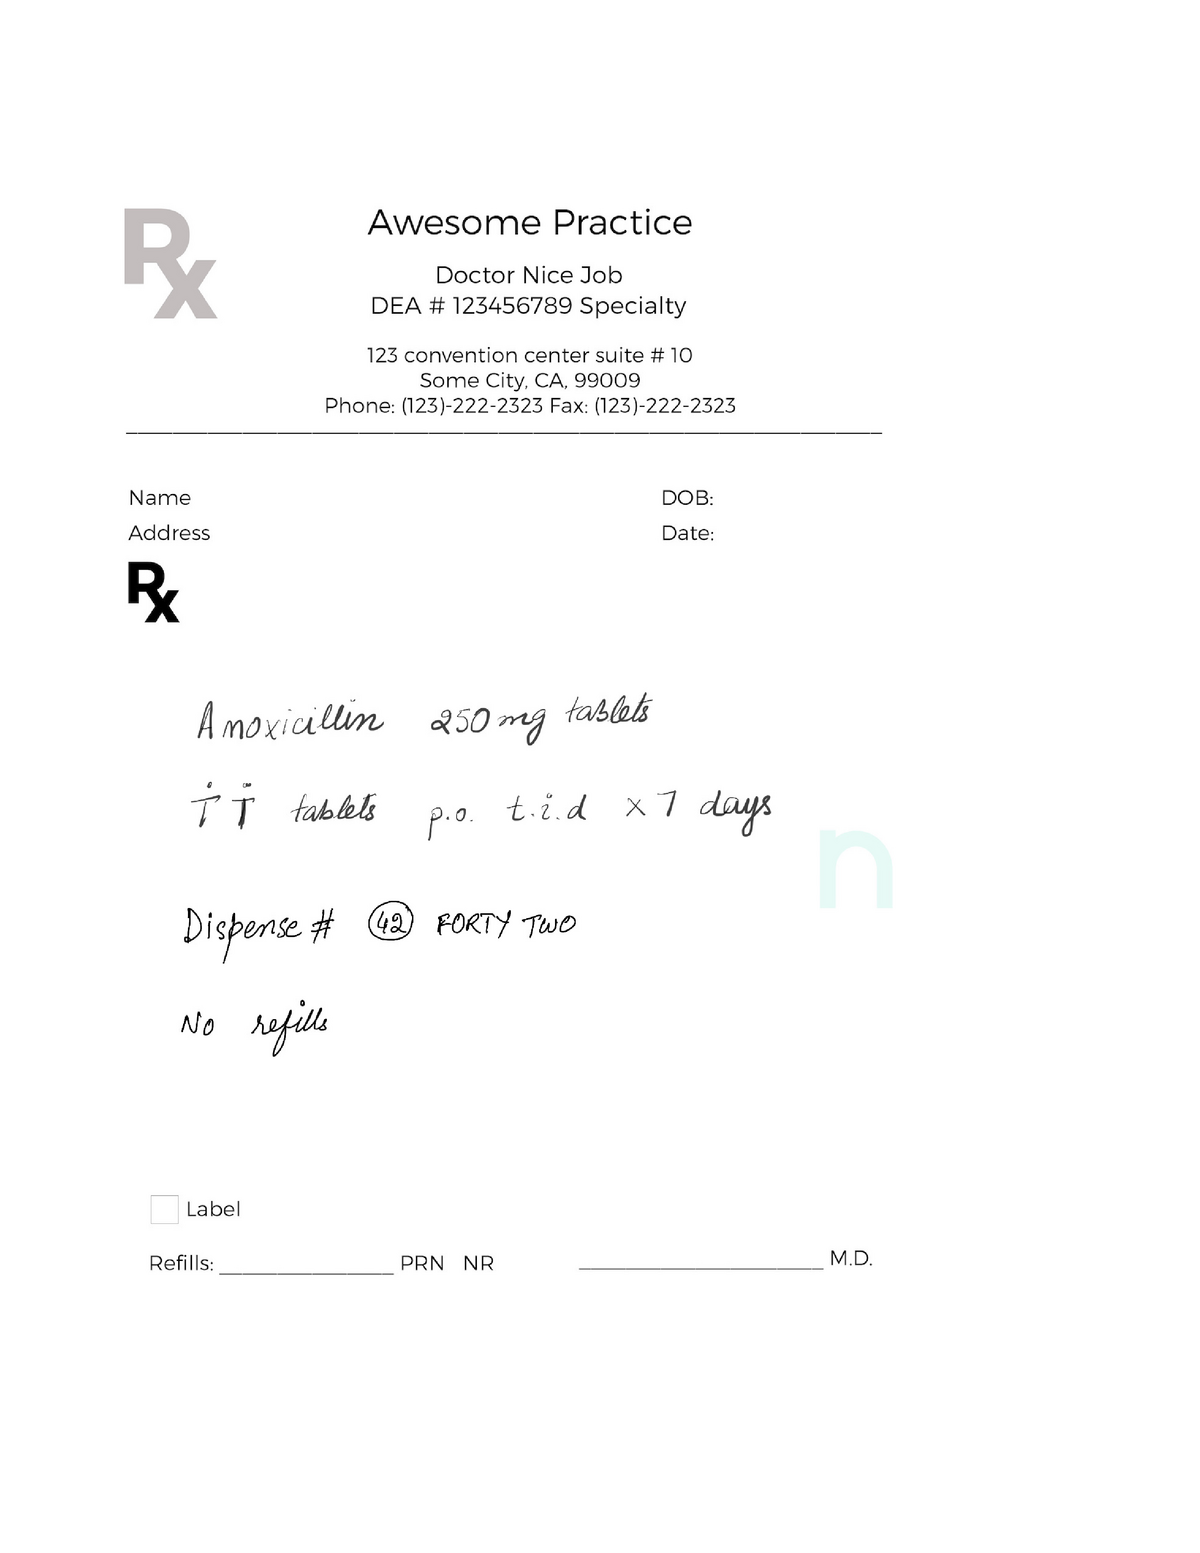 Rx
Awesome Practice
Doctor Nice Job
DEA # 123456789 Specialty
123 convention center suite # 10
Some City, CA, 99009
Phone: (123)-222-2323 Fax: (123)-222-2323
Name DOB:
Address Date:
Rx
Amoxicillin 250 mg tablets
TT tablets p.o. t.i.d x 7 days
n
Dispense # 42 FORTY TWO
No refills
Label
Refills: ________________ PRN NR ______________________ M.D.